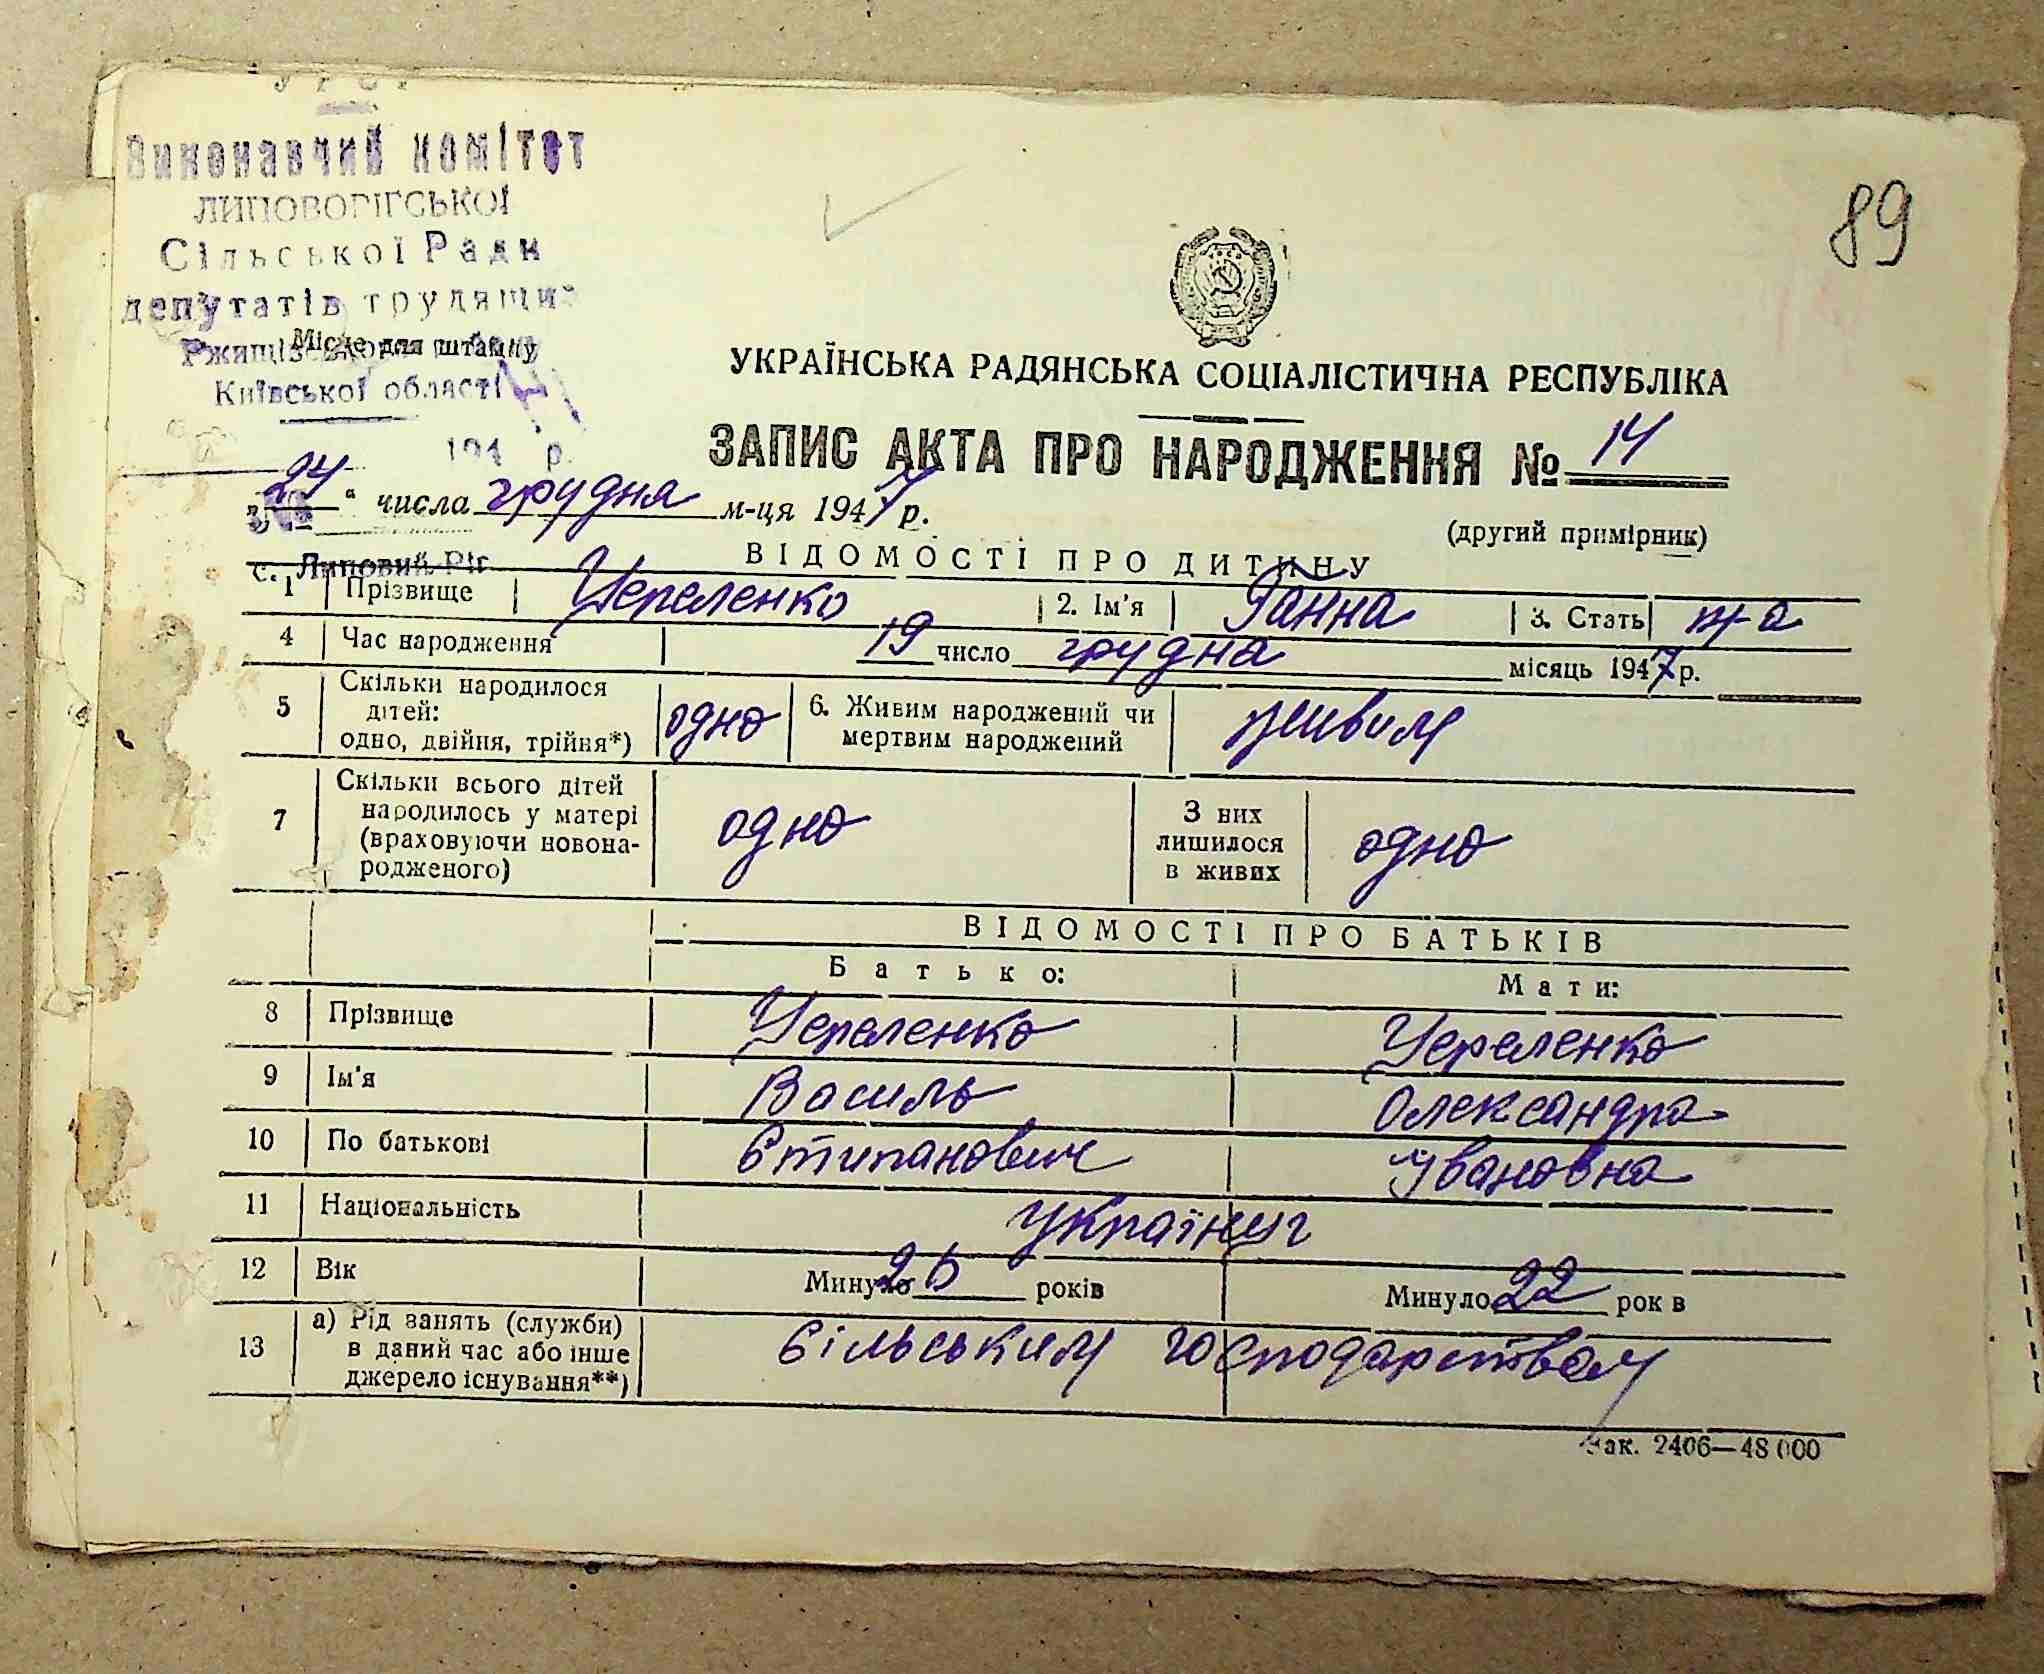 УРСР
Виконавчий комітет
ЛИПОВОРІГСЬКОЇ
Сільської Ради
депутатів трудящих
Місце для штампу
Київської області
194 р.
89
УКРАЇНСЬКА РАДЯНСЬКА СОЦІАЛІСТИЧНА РЕСПУБЛІКА
ЗАПИС АКТА ПРО НАРОДЖЕННЯ № 14
„24“ числа грудня м-ця 1947 р.
(другий примірник)
с. Липовий-Ріг
ВІДОМОСТІ ПРО ДИТИНУ
1 Прізвище Череленко 2. Ім'я Ганна 3. Стать ж-а
4 Час народження 19 число грудня місяць 1947 р.
5 Скільки народилося дітей: одно, двійня, трійня*) одно 6. Живим народжений чи мертвим народжений живим
7 Скільки всього дітей народилось у матері (враховуючи новонародженого) одно З них лишилося в живих одно
ВІДОМОСТІ ПРО БАТЬКІВ
Батько: Мати:
8 Прізвище Череленко Череленко
9 Ім'я Василь Олександра
10 По батькові Стипанович Ивановна
11 Національність українці
12 Вік Минуло 25 років Минуло 22 рок в
13 а) Рід занять (служби) в даний час або інше джерело існування**) сільським господарством
Зак. 2406—48 000